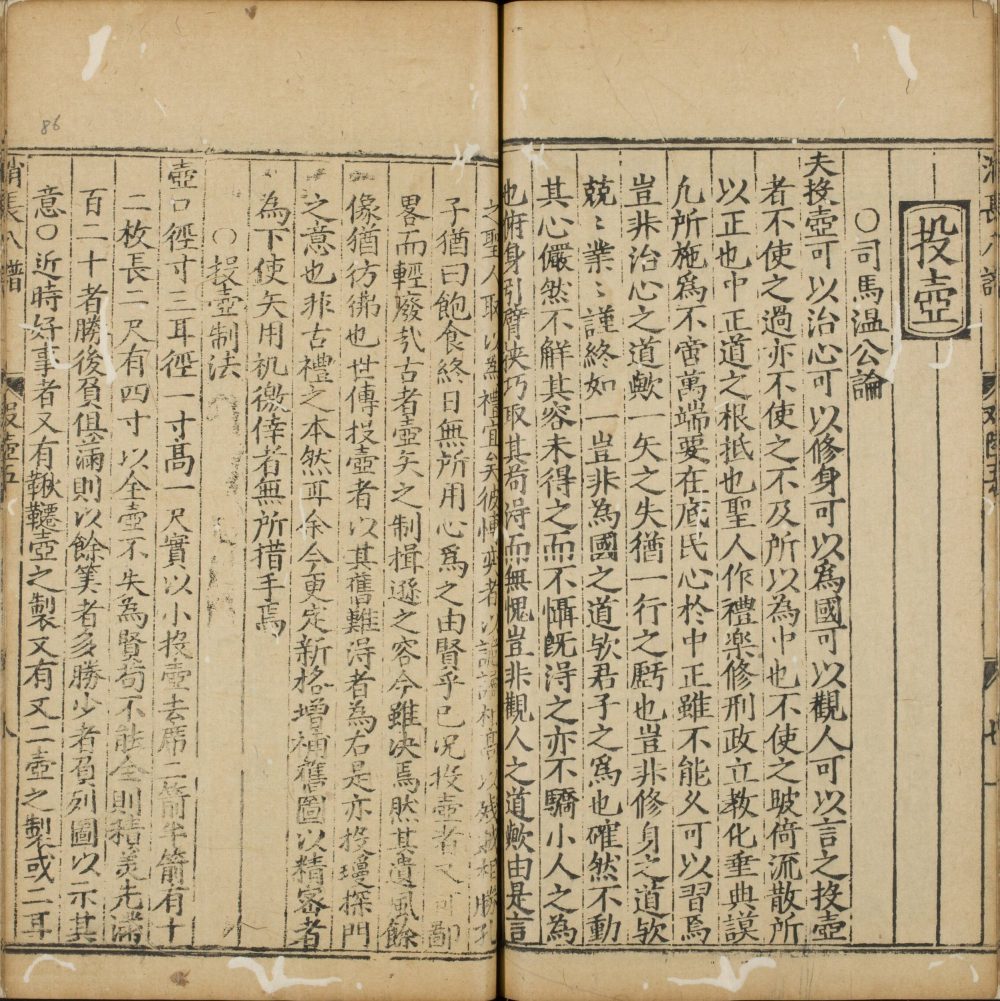 投壺
〇司馬温公論
夫投壺可以治心可以修身可以爲國可以觀人可以言之投壺
者不使之過亦不使之不及所以為中也不使之陂倚流散所
以正也中正道之根抵也聖人作禮樂修刑政立教化垂典謨
凢所施爲不啻萬端要在底民心於中正雖不能久可以習焉
豈非治心之道歟一矢之失猶一行之虧也豈非修身之道欤
兢〻業〻謹終如一豈非為國之道欤君子之爲也確然不動
其心儼然不觧其容未得之而不懾既淂之亦不驕小人之為
也俯身引臂挟巧取其苟淂而無愧豈非觀人之道歟由是言
之聖人取以為禮宜矣彼博奕者以詭譎相高以殘賊相勝孔
子猶曰飽食終日無所用心爲之由賢乎已况投壺者又可鄙
畧而輕廢㢤古者壺矢之制揖遜之容今雖决焉然其遺風餘
像猶彷彿也世傳投壺者以其舊難淂者為右是亦投瓊探鬥
之意也非古禮之本然再余今更定新格增補舊圖以精審者
為下使矢用机徼倖者無所措手焉
〇投壺制法
壺口徑寸三耳徑一寸髙一尺實以小投壺去席二箭半箭有十
二枚長二尺有四寸以全壺不失為賢苟不能全則積筭先滿
百二十者勝後負俱滿則以餘筭者多勝少者負列圖以示其
意〇近時好事者又有鞦韆壺之製又有又二壺之製或二耳
八譜
投壺五
86